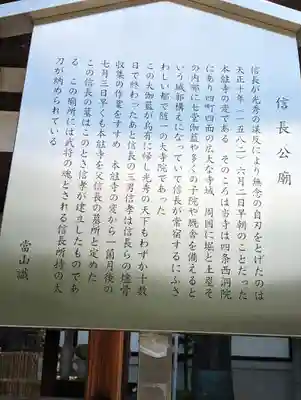 信長公廟
信長が光秀の謀反により無念の自刃をとげたのは
天正十年(一五八二)六月二日早朝のことだった
本能寺の変である そのころ当寺は四条西洞院
にあり四町四面の広大な寺域、周囲に堀と土塁そ
の内部に七堂伽藍や多くの子院や厩舎を備えると
いう城郭構えになっていて信長が常宿するにふさ
わしい都で随一の大寺院であった
この大伽藍が烏有に帰し光秀の天下もわずか十数
日で終わったあと信長の三男信孝は信長らの遺骨
収集の作業をすすめ 本能寺の変から一箇月後の
七月三日早くも本能寺を父信長の墓所と定めた
この信長の墓はこのとき信孝が建立したものであ
る この廟所には武将の魂とされる信長所持の太
刀が納められている
當山識